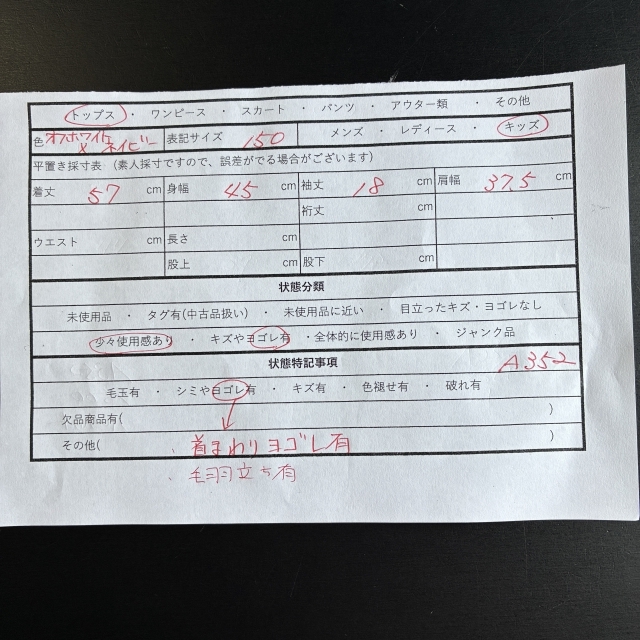 トップス ・ ワンピース ・ スカート ・ パンツ ・ アウター類 ・ その他
色 オフホワイト×ネイビー 表記サイズ 150 メンズ ・ レディース ・ キッズ
平置き採寸表（素人採寸ですので、誤差がでる場合がございます）
着丈 57 cm 身幅 45 cm 袖丈 18 cm 肩幅 37.5 cm
裄丈 cm
ウエスト cm 長さ cm
股上 cm 股下 cm
状態分類
未使用品 ・ タグ有(中古品扱い) ・ 未使用品に近い ・ 目立ったキズ・ヨゴレなし
少々使用感あり ・ キズやヨゴレ有 ・全体的に使用感あり ・ ジャンク品
状態特記事項 A352
毛玉有 ・ シミやヨゴレ有 ・ キズ有 ・ 色褪せ有 ・ 破れ有
欠品商品有( )
その他( ・首まわりヨゴレ有 )
・毛羽立ち有